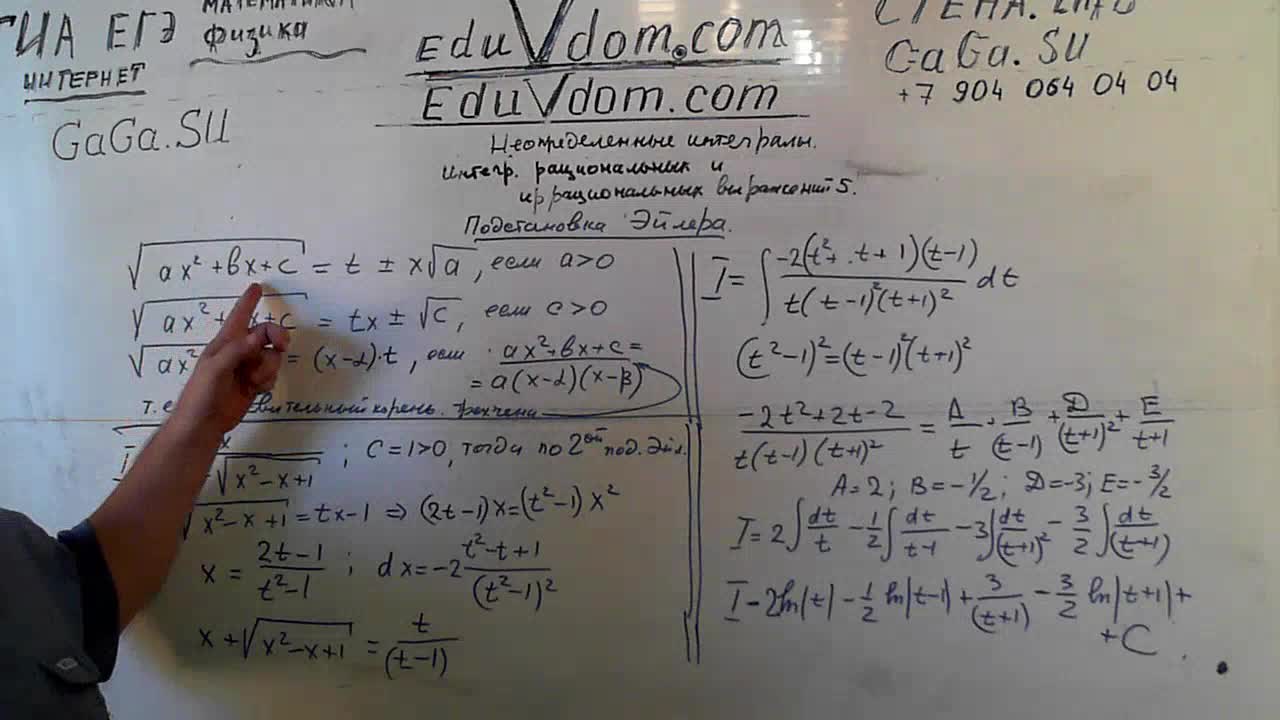 ГИА ЕГЭ
физика
ИНТЕРНЕТ
GaGa.SU
EduVdom.com
EduVdom.com
GaGa.SU
+7 904 064 04 04
Неопределенные интегралы.
Интегр. рациональных и
иррациональных выражений 5.
Подстановка Эйлера.
√(ax²+bx+c) = t ± x√a, если a>0
= tx ± √c, если c>0
= (x-α)·t, если ax²+bx+c =
= a(x-α)(x-β)
корень трехчлена
√(x²-x+1) ; C=1>0, тогда по 2ой под. Эйл.
√(x²-x+1) = tx-1 ⇒ (2t-1)x=(t²-1)x²
x = (2t-1)/(t²-1) ; dx=-2 (t²-t+1)/(t²-1)²
x+√(x²-x+1) = t/(t-1)
I= ∫ -2(t²+.t+1)(t-1)/(t(t-1)²(t+1)²) dt
(t²-1)²=(t-1)²(t+1)²
(-2t²+2t-2)/(t(t-1)(t+1)²) = A/t + B/(t-1) + D/(t+1)² + E/(t+1)
A=2; B=-1/2; D=-3; E=-3/2
I=2∫dt/t - 1/2∫dt/(t-1) - 3∫dt/(t+1)² - 3/2∫dt/(t+1)
I-2ln|t| - 1/2 ln|t-1| + 3/(t+1) - 3/2 ln|t+1| +
+C